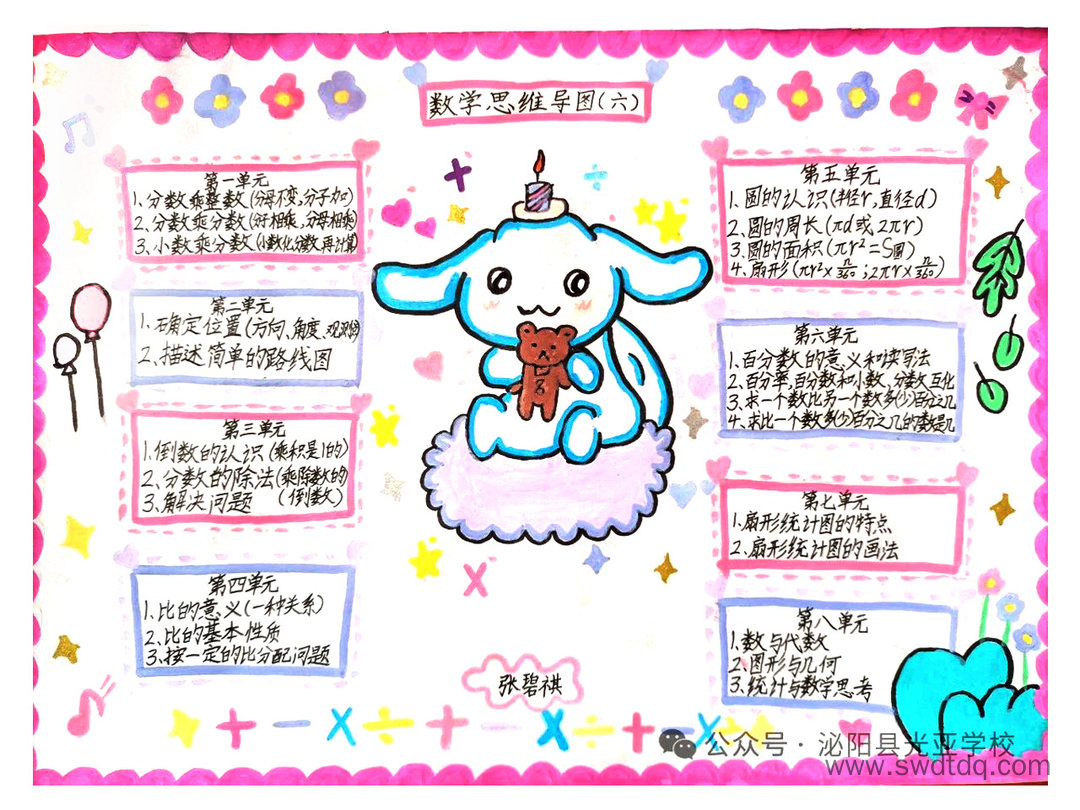 数学思维导图(六)
第一单元
1.分数乘整数(分母不变,分子加)
2.分数乘分数(分子相乘,分母相乘)
3.小数乘分数(小数化分数再计算)
第二单元
1.确定位置(方向、角度、观测点)
2.描述简单的路线图
第三单元
1.倒数的认识(乘积是1的)
2.分数的除法(乘除数的
3.解决问题 (倒数)
第四单元
1.比的意义(一种关系)
2.比的基本性质
3.按一定的比分配问题
第五单元
1.圆的认识(半径r,直径d)
2.圆的周长(πd或2πr)
3.圆的面积(πr²=S圆)
4.扇形(πr²×n/360;2πr×n/360)
第六单元
1.百分数的意义和读写法
2.百分率,百分数和小数、分数互化
3.求一个数比另一个数多(少)百分之几
4.求比一个数多(少)百分之几的数是几
第七单元
1.扇形统计图的特点
2.扇形统计图的画法
第八单元
1.数与代数
2.图形与几何
3.统计与数学思考
张碧祺
公众号·泌阳县光亚学校
www.swdtdq.com